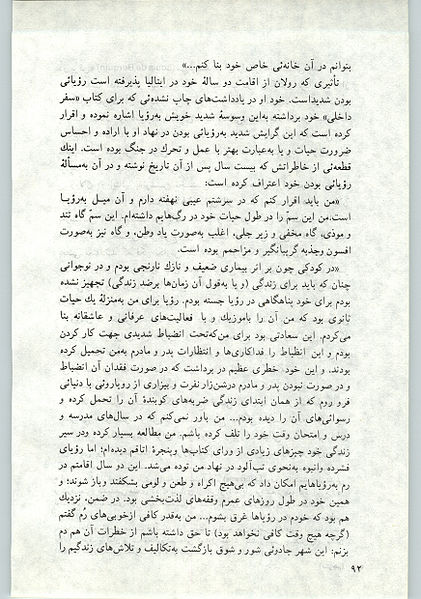 بتوانم در آن خانه‌ئی خاص خود بنا کنم...»
تأثیری که رولان از اقامت دو سالهٔ خود در ایتالیا پذیرفته است رؤیائی
بودن شدید‌است. خود او در یادداشت‌های چاپ نشده‌ئی که برای کتاب «سفر
داخلی» خود برداشته به‌این وسوسهٔ شدید خویش به‌رؤیا اشاره نموده و اقرار
کرده است که این گرایش شدید به‌رؤیائی بودن در نهاد او با اراده و احساس
ضرورت حیات و یا به‌عبارت بهتر با عمل و تحرك در جنگ بوده است. اینك
قطعه‌ئی از خاطراتش که بیست سال پس از آن تاریخ نوشته و در آن به‌مسألهٔ
رؤیائی بودن خود اعتراف کرده است:
«من باید اقرار کنم که در سرشتم عیبی نهفته دارم و آن میل به‌رؤیا
است.من این سمّ را در طول حیات خود در رگ‌هایم داشته‌ام. این سمّ گاه تند
و موذی، گاه مخفی و زیر جلی، اغلب به‌صورت یاد وطن، و گاه نیز به‌صورت
افسون وجذبه گریبانگیر و مزاحمم بوده است.
«در کودکی چون بر اثر بیماری ضعیف و نازك نارنجی بودم و در نوجوانی
چنان که باید برای زندگی (و یا به‌قول آن زمان‌ها برضد زندگی) تجهیز نشده
بودم برای خود پناهگاهی در رؤیا جسته بودم. رؤیا برای من به‌منزلهٔ یك حیات
ثانوی بود که من آن را باموزیك و با فعالیت‌های عرفانی و عاشقانه بنا
می‌کردم. این سعادتی بود برای من‌که‌تحت انضباط شدیدی جهت کار کردن
بودم و این انظباط را فداکاری‌ها و انتظارات پدر و مادرم به‌من تحمیل کرده
بودند. و این خود خطری عظیم در برداشت که در صورت فقدان آن انضباط
و در صورت نبودن پدر و مادرم درشن‌زار نفرت و بیزاری از رویاروئی با دنیائی
فرو روم که از همان ابتدای زندگی ضربه‌های کوبندهٔ آن را تحمل کرده و
رسوائی‌های آن را دیده بودم... من باور نمی‌کنم که در سال‌های مدرسه و
درس و امتحان وقت خود را تلف کرده باشم. من مطالعه بسیار کرده ودر سیر
زندگی خود چیزهای زیادی از ورای کتاب‌ها وپنجرهٔ اتاقم دیده‌ام؛ اما رؤیای
فشرده وانبوه به‌نحوی تب‌آلود در نهاد من توده می‌شد. این دو سال اقامتم در
رم به‌رؤیاهایم امکان داد که بی‌هیچ اکراه و طعن و لومی بشکفتند وباز شوند؛ و
همین خود در طول روزهای عمرم وقفه‌های لذت‌بخشی بود. در ضمن، نزدیك
هم بود که خودم در رؤیاها غرق بشوم... من به‌قدر کافی ازخوبی‌های رُم گفتم
(گرچه هیچ وقت کافی نخواهد بود) تا حق داشته باشم از خطرات آن هم دم
بزنم: این شهر جادوئی شور و شوق بازگشت به‌تکالیف و تلاش‌های زندگیم را
۹۲